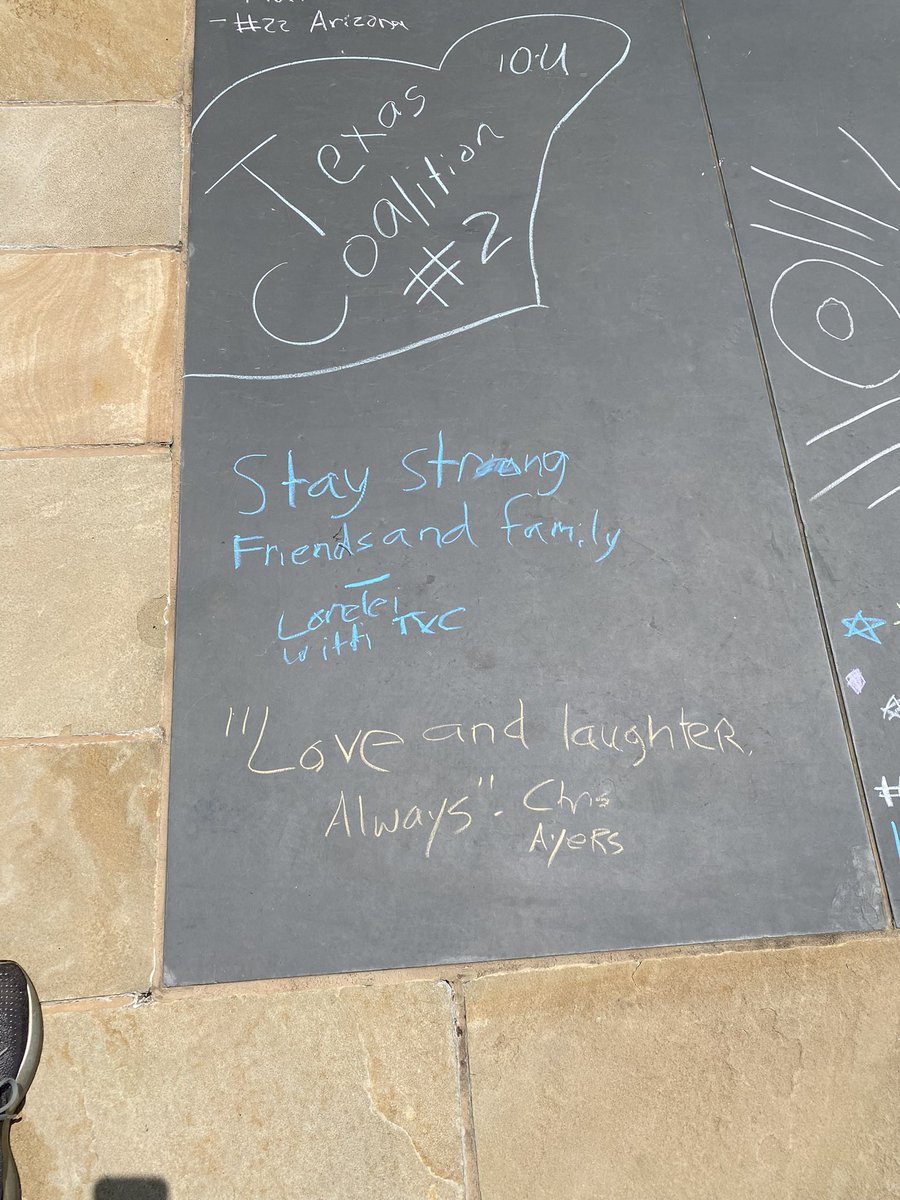 - #22 Arizona
10U
Texas
Coalition
#2
Stay strong
Friends and family
-
Lorelei
with TXC
"Love and laughter.
Always" - Chris
Ayers
#